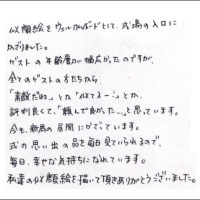 似顔絵をウェルカムボードとして、式場の入口に
かざりました。
ゲストの年齢層が幅広かったのですが、
全てのゲストの方たちから、
「素敵だね。」とか「似てるー!」とか、
評判良くて、「頼んで良かった…」と思っています。
今も、新居の居間にかざっています。
式の思い出の品を毎日見ていられるので、
毎日、幸せな気持ちになれています。
私達の似顔絵を描いて頂きありがとうございました。